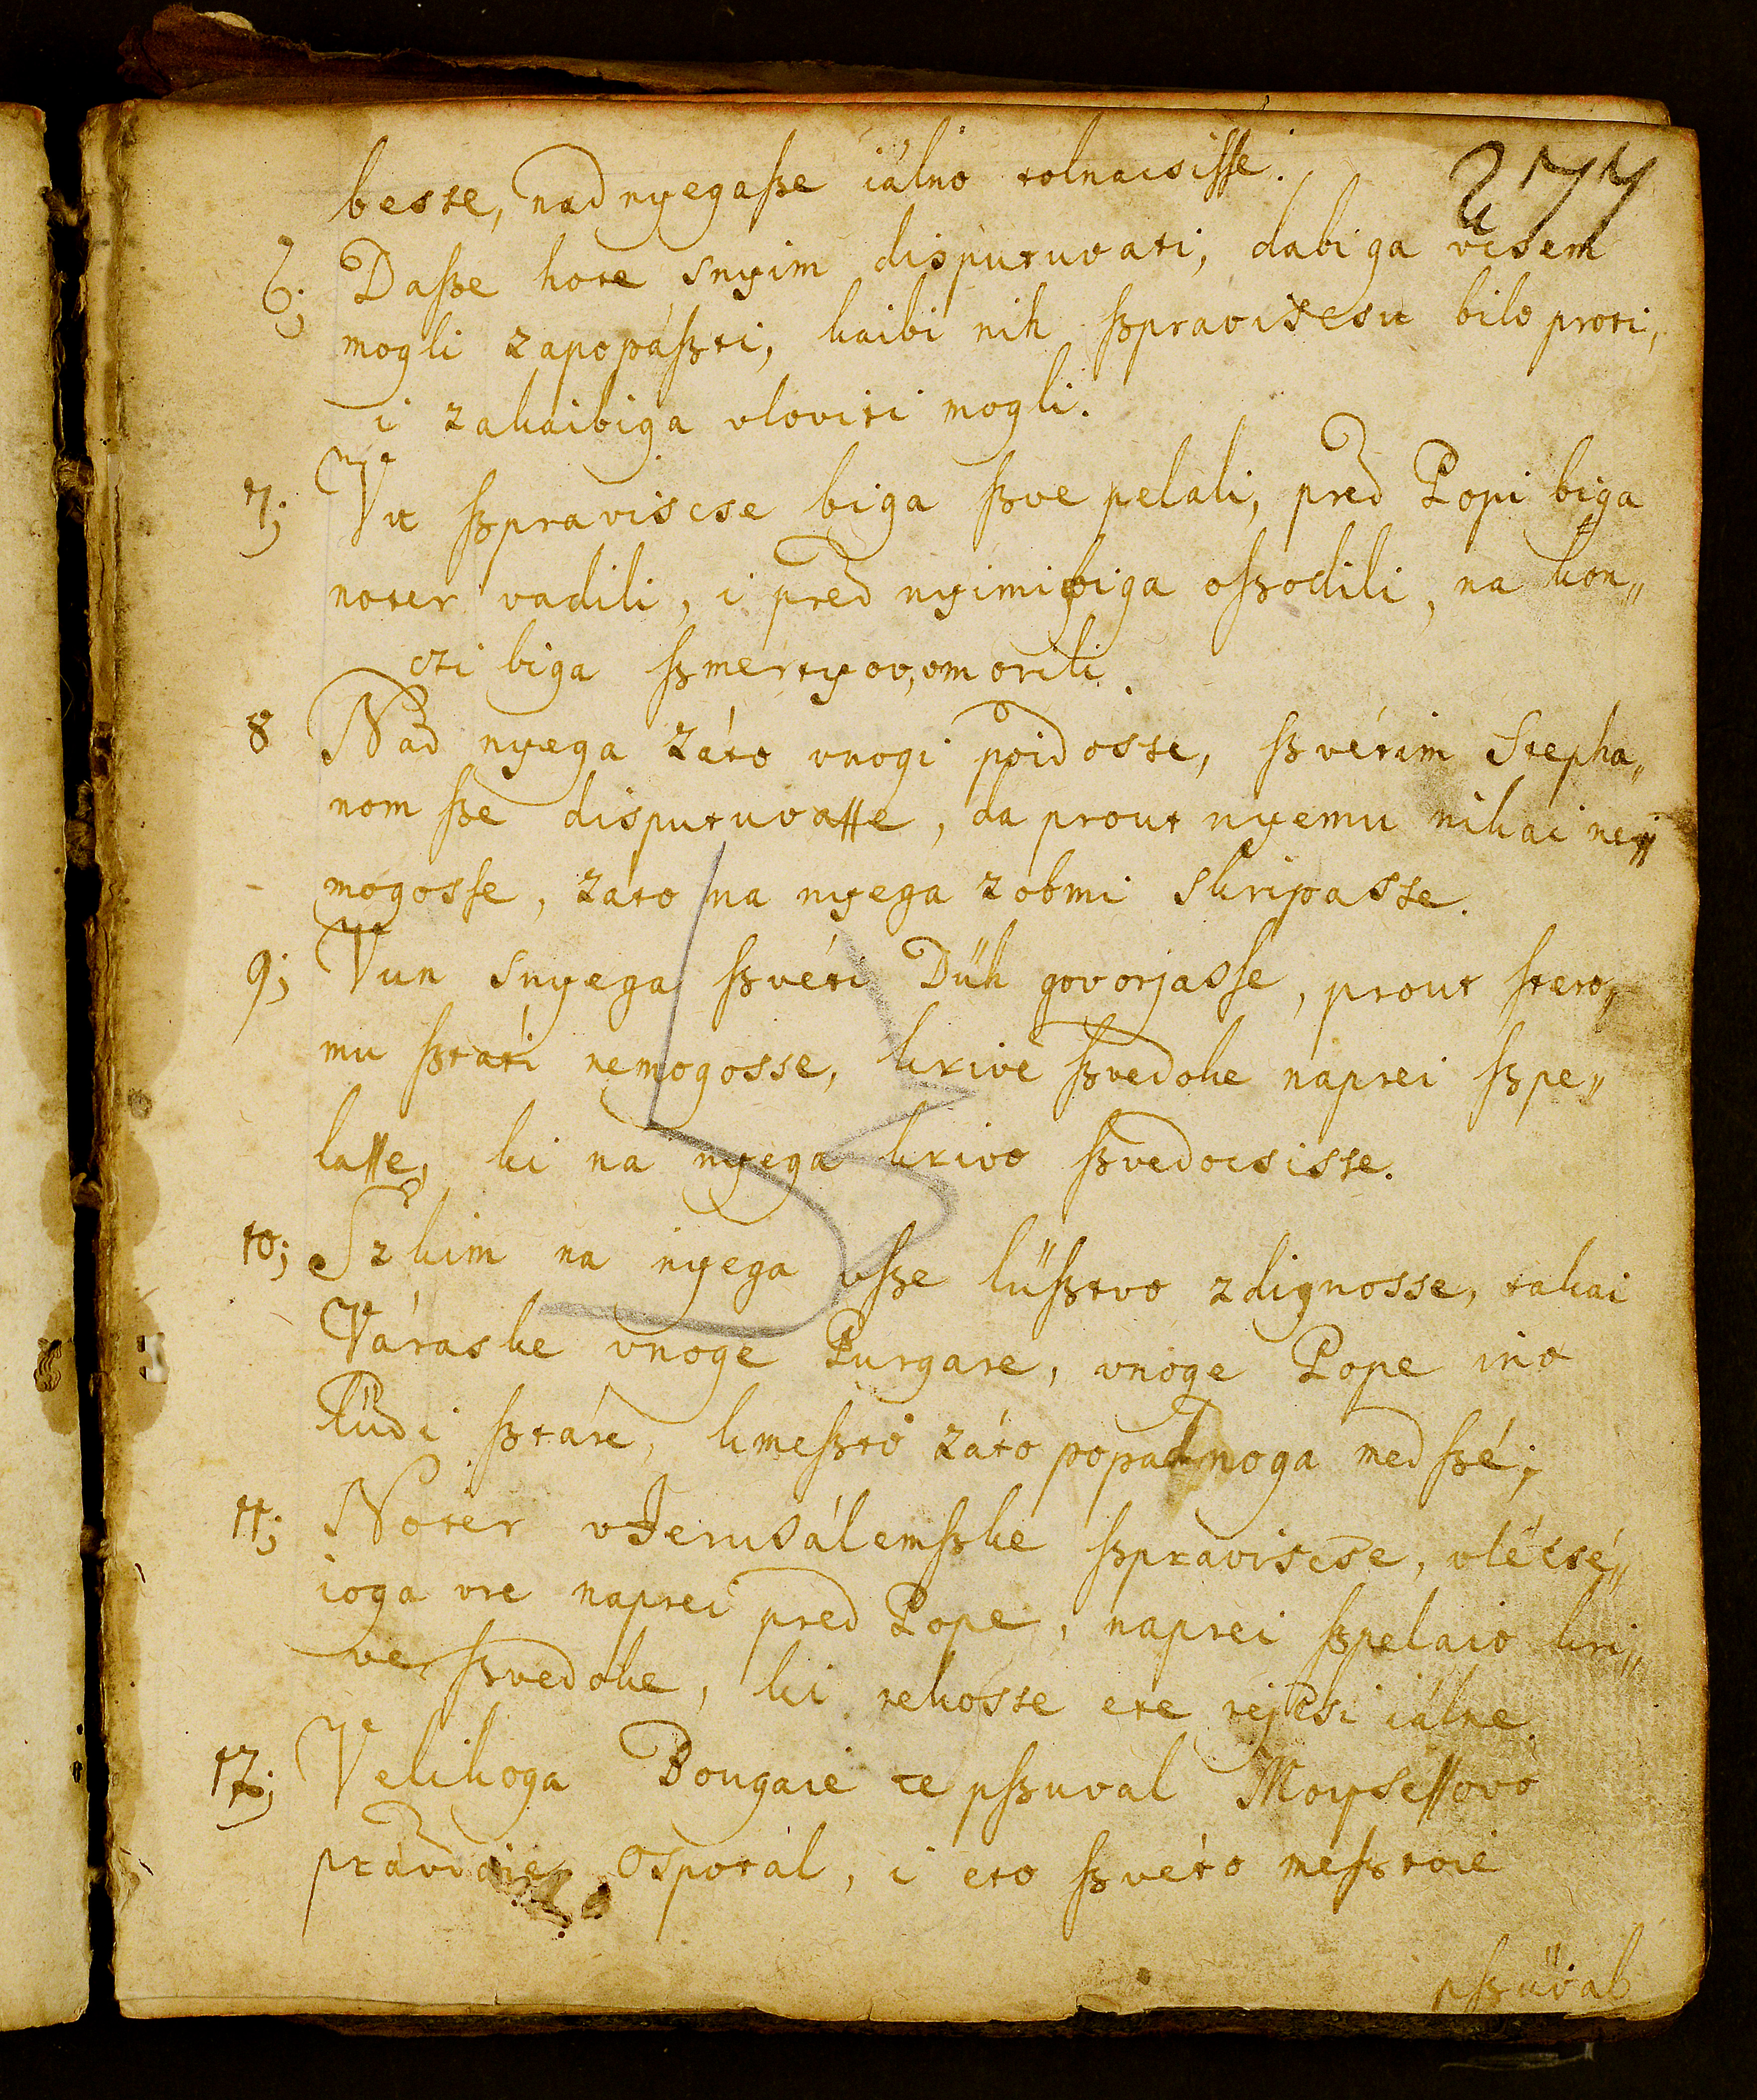 277
besse, nad nyegaſze iálno tolnacsiſse.
6; Daſze hote snyim disputuvati, dabi ga vcsem
mogli zapopáſzti, kaibi nih ſzpraviscsu bilo proti,
i zakaibiga vloviti mogli.
7; Vu ſzpraviscse biga ſzve pelali, pred Popi biga
noter vadili, i pred nyimi biga oſzodili, na kon„
czi biga ſzmertyov, vmorili.
8 Nad nyega záto vnogi poidosse, ſzvétim Stepha„
nom ſze disputuvaſse, da prout nyemu nikai ne„
mogosse, zato na nyega zobmi skripasse.
9; Vun snyega ſzvéti Dűh govorjaſse, prout ſtero„
mu ſztati nemogosse, krive ſzvedoke naprei ſzpe„
laſse, ki na nyega krivo ſzvedocsisse.
10; Szkim na nyega vſze lűſztvo zdignosse, takai
Váraske vnoge Purgare, vnoge Pope ino
lűdi ſztáre, kmeſzto záto popadnoga med ſzé;
11; Noter vJerusálemſzke ſzpraviscse, vlécsé„
ioga vre naprei pred Pope, naprei ſzpelaio kri„
ve ſzvedoke, ki rekosse ete rejcsi iálne.
12; Velikoga Bougaie te pſzuval Moyseſsovo
právdoie ospotal, i eto ſzvéto meſztoie
pſzuval